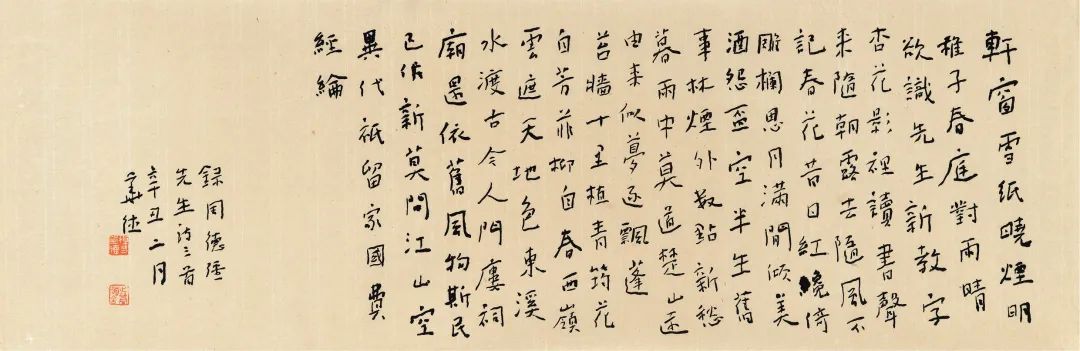 軒窗雪紙曉煙明
稚子春庭對雨晴
欲識先生新教字
杏花影裡讀書聲
来隨朝露去隨風不
記春花昔日紅晚倚
雕欄思月滿閒傾美
酒怨盃空半生舊
事林煙外數點新愁
暮雨中莫道楚山
由来似夢逐飄蓬
苔牆十里植青筠花
自芳菲柳自春西嶺
雲遮天地色東溪
水渡古今人門廔祠
廟還依舊風物斯民
已作新莫問江山空
異代祇留家國費
經綸
錄同德
先生詩三首
辛丑二月